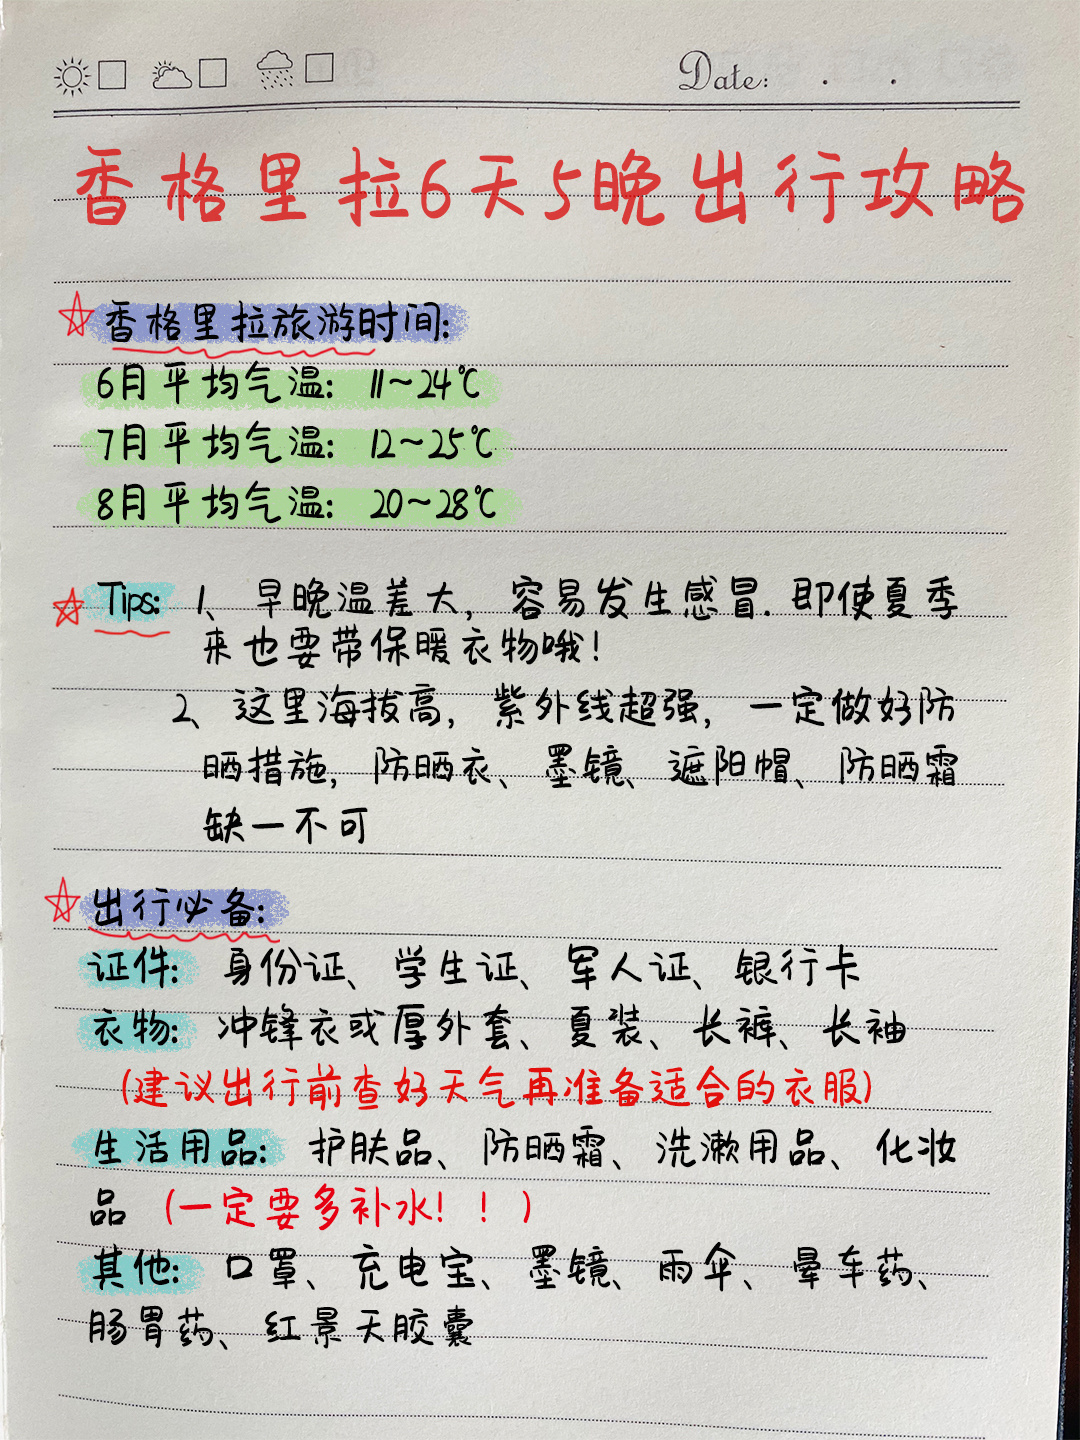 Date: . .
香格里拉6天5晚出行攻略
香格里拉旅游时间:
6月平均气温: 11~24℃
7月平均气温: 12~25℃
8月平均气温: 20~28℃
Tips: 1、早晚温差大，容易发生感冒.即使夏季
来也要带保暖衣物哦!
2、这里海拔高，紫外线超强，一定做好防
晒措施，防晒衣、墨镜、遮阳帽、防晒霜
缺一不可
出行必备:
证件: 身份证、学生证、军人证、银行卡
衣物: 冲锋衣或厚外套、夏装、长裤、长袖
(建议出行前查好天气再准备适合的衣服)
生活用品: 护肤品、防晒霜、洗漱用品、化妆
品 (一定要多补水!!)
其他: 口罩、充电宝、墨镜、雨伞、晕车药、
肠胃药、红景天胶囊